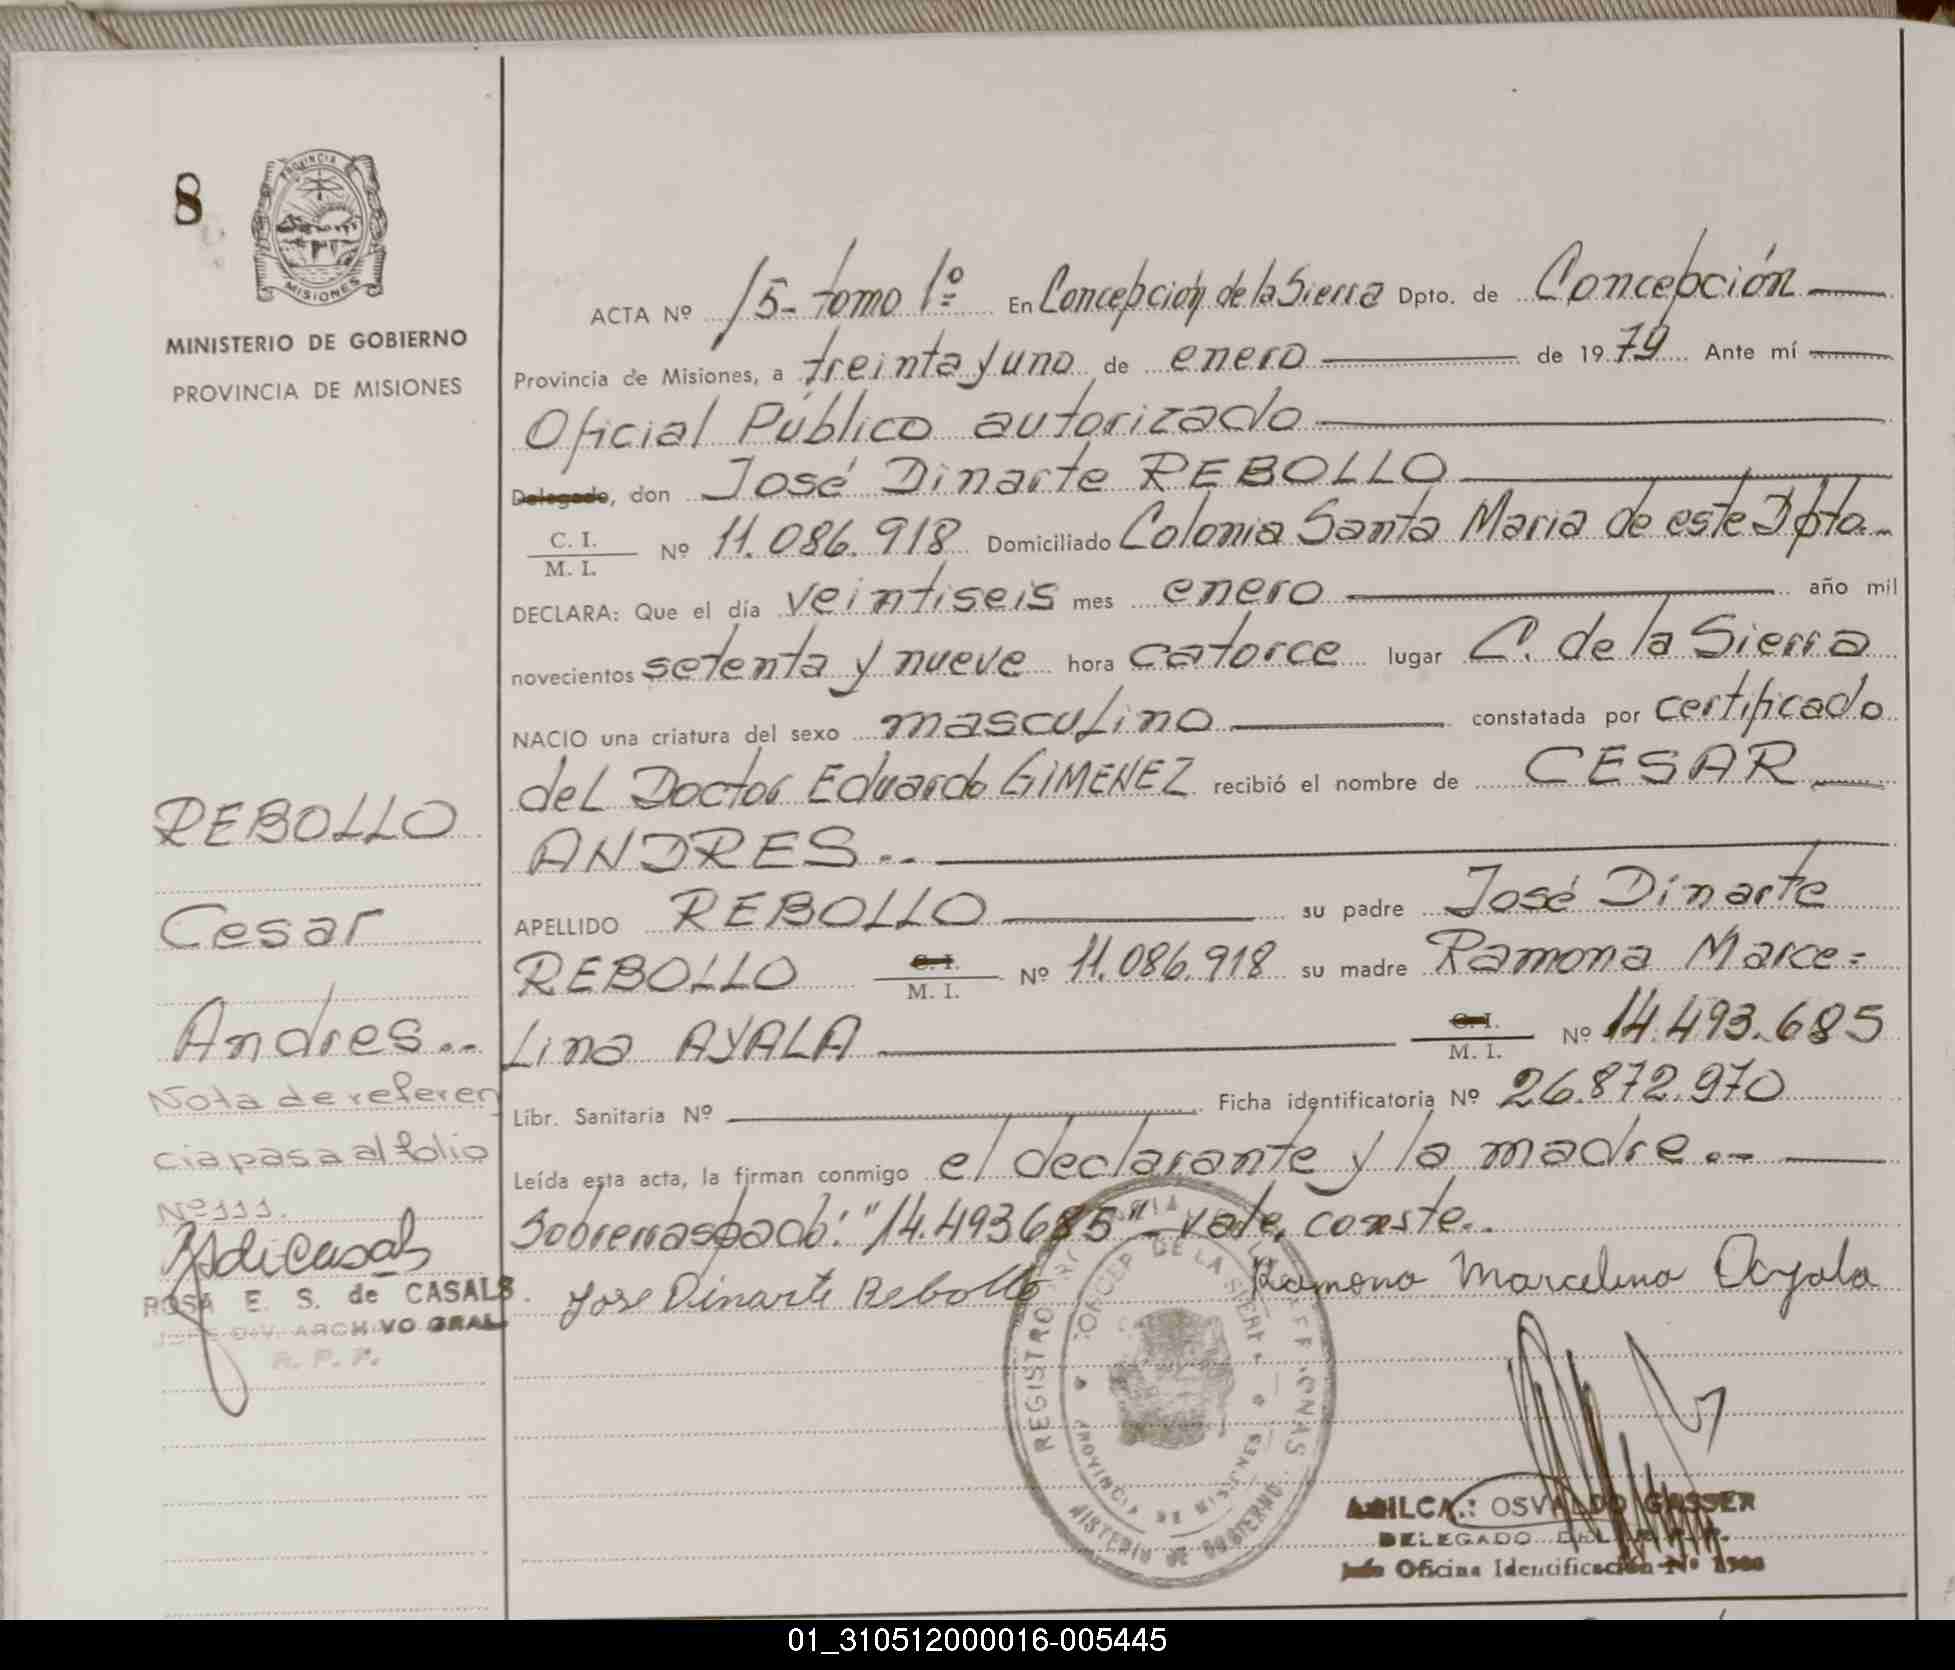 8
PROVINCIA
MISIONES
MINISTERIO DE GOBIERNO
PROVINCIA DE MISIONES
ACTA Nº 15- tomo 1º En Concepción de la Sierra Dpto. de Concepción
Provincia de Misiones, a treinta y uno de enero de 1979 Ante mí
Oficial Público autorizado
Delegado, don José Dinarte REBOLLO
C. I.
M. I. Nº 11.086.918 Domiciliado Colonia Santa Maria de este Dpto.-
DECLARA: Que el día veintiseis mes enero año mil
novecientos setenta y nueve hora catorce lugar C. de la Sierra
NACIO una criatura del sexo masculino constatada por certificado
del Doctor Eduardo GIMENEZ recibió el nombre de CESAR
ANDRES.-
APELLIDO REBOLLO su padre José Dinarte
REBOLLO C. I. M. I. Nº 11.086.918 su madre Ramona Marce=
lina AYALA C. I. M. I. Nº 14.493.685
Libr. Sanitaria Nº Ficha identificatoria Nº 26.872.970
Leída esta acta, la firman conmigo el declarante y la madre.-
Sobrerraspado: "14.493685"- vale, conste.
Jose Dinarte Rebollo Ramona Marcelina Ayala
REBOLLO
Cesar
Andres.-
Nota de referen
cia pasa al folio
Nº 111.
ROSA E. S. de CASALS.
JEFE DIV. ARCHIVO GRAL.
R. P. P.
REGISTRO
CONCEP. DE LA SIERRA
PROVINCIA DE MISIONES
MINISTERIO DE GOBIERNO
OSVALDO GASSER
DELEGADO DEL
Jefe Oficina Identificación Nº
01_310512000016-005445